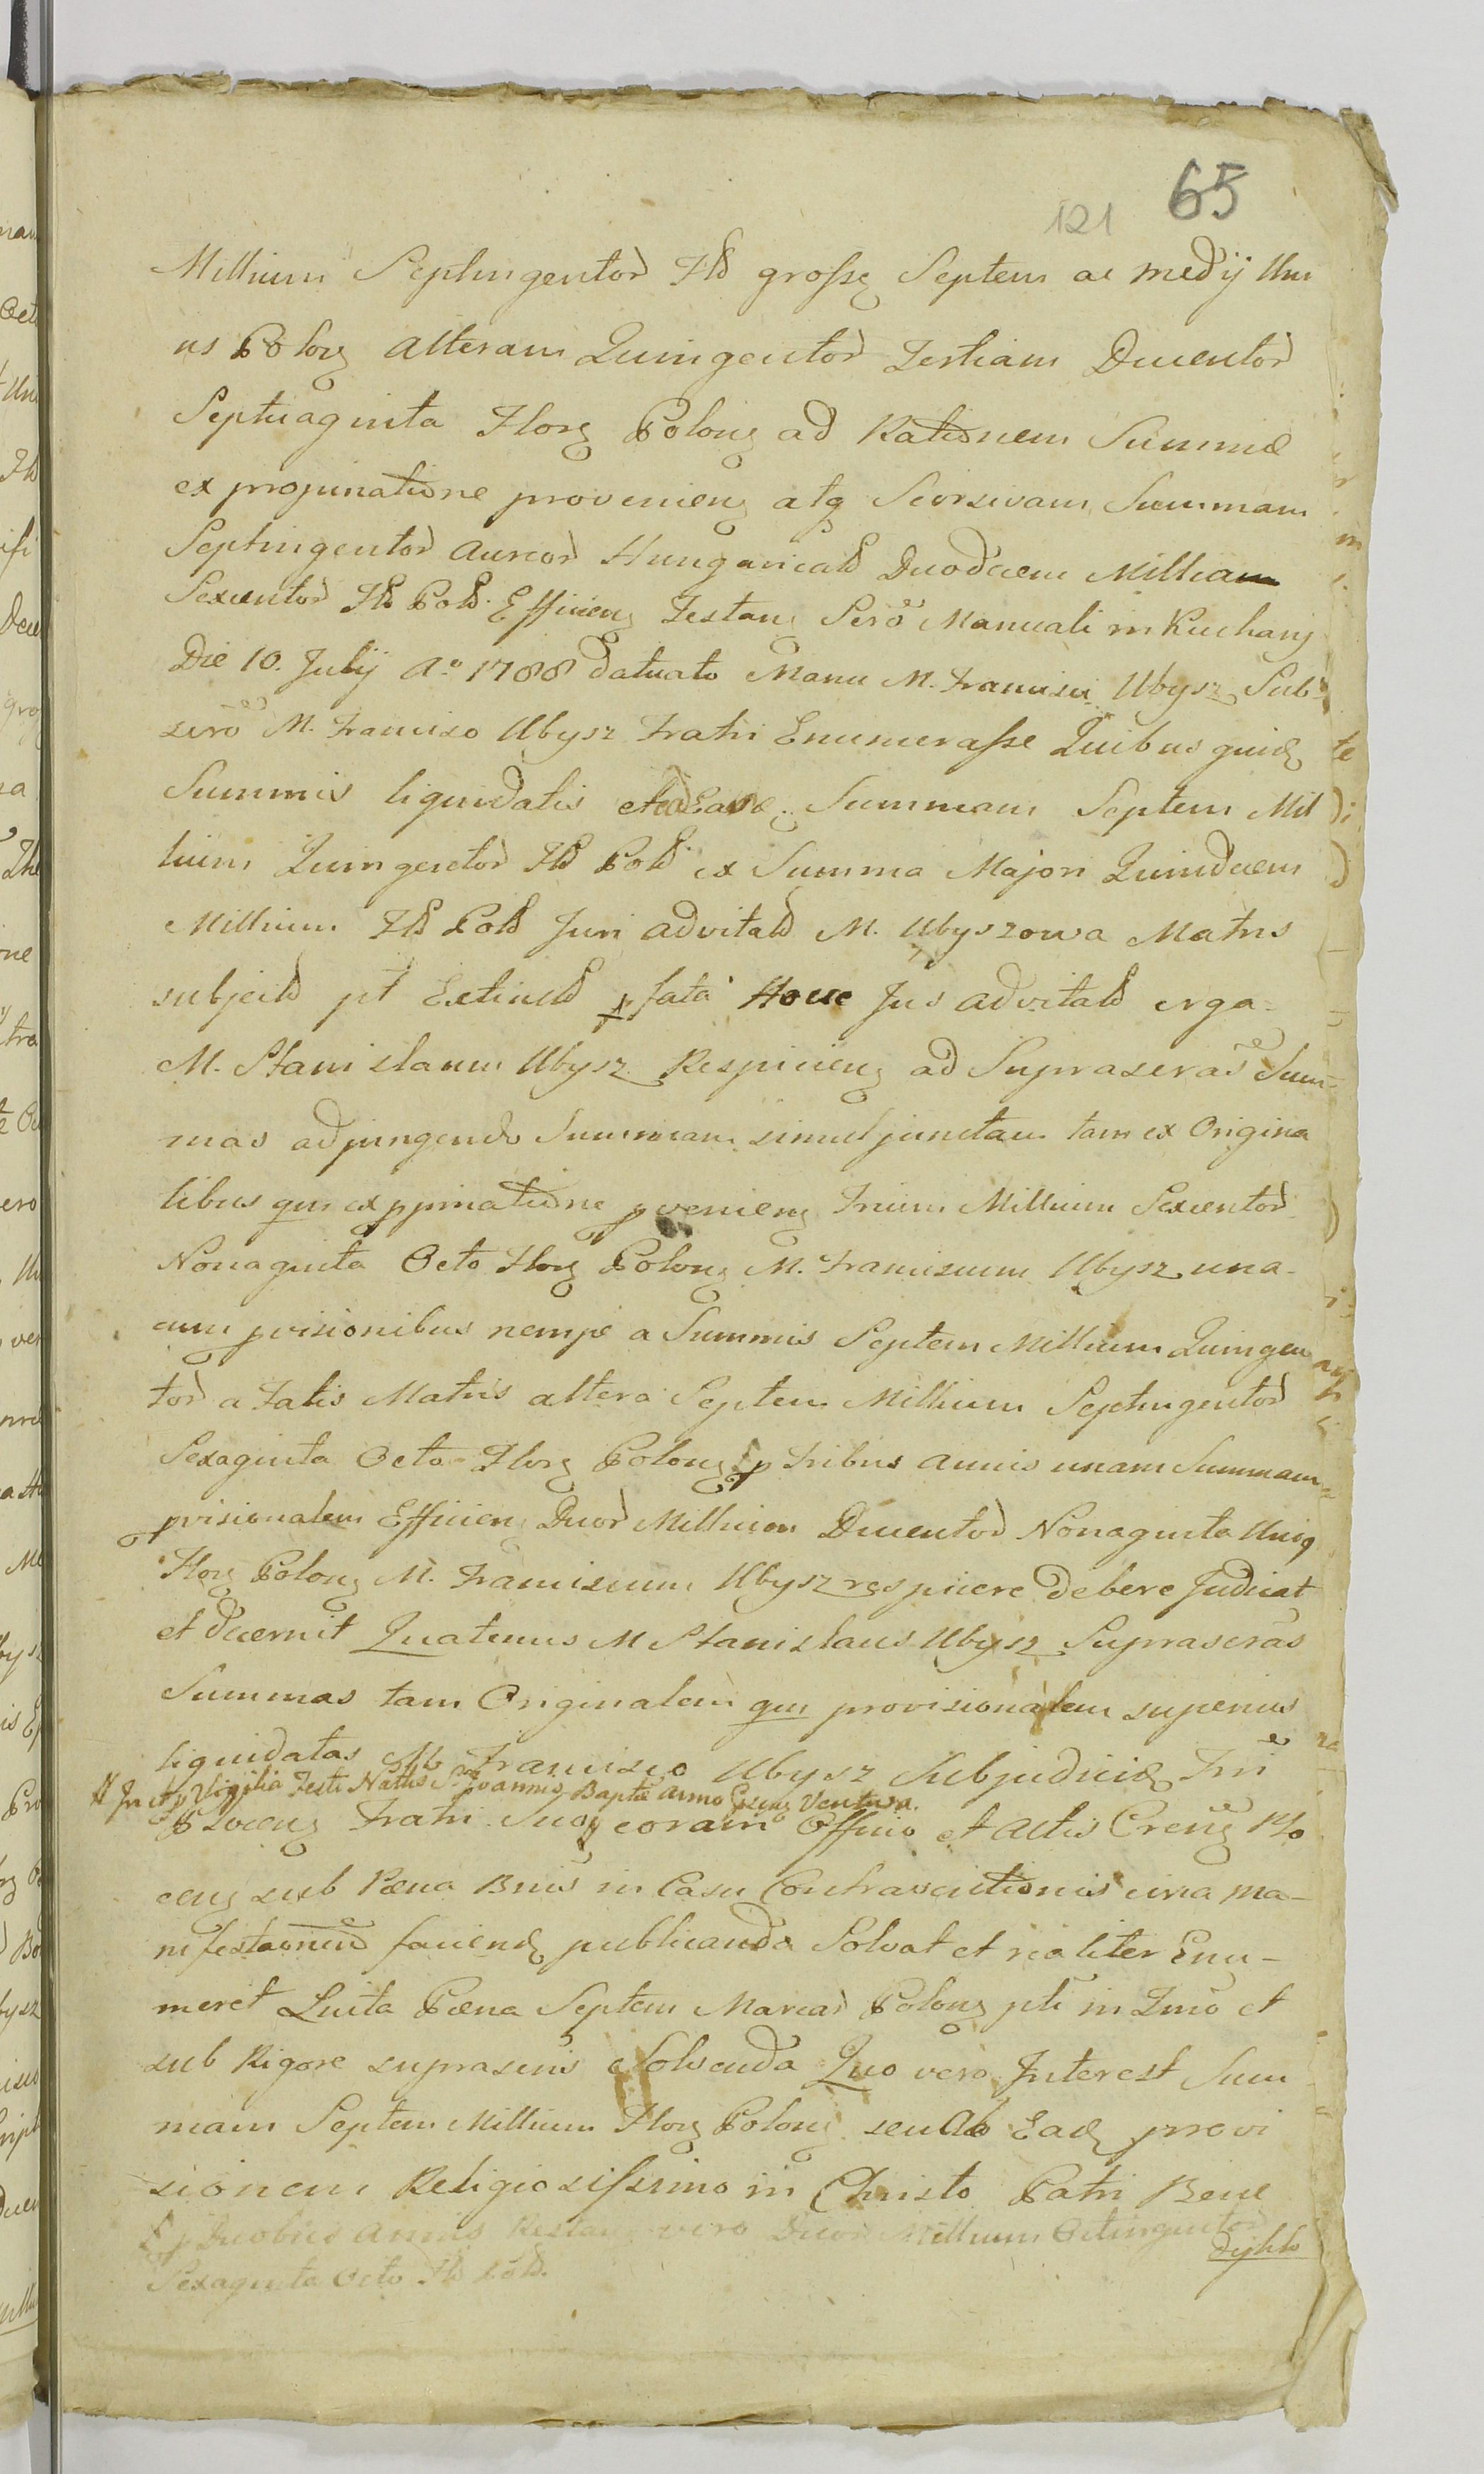 121 65
Millium Septingentor Fld grosse Septem ac medij Unı
us Polon alteram Quingentor Tertiam Ducentor
Septuaginta Flor Polon ad Rationem Summæ
ex propinatione provenien atq Seorsivam Summam
Septingentor Aureor Hungaricald Duodecem Millium
Sexcentor Fld Pold Efficien Testan Scrõ Manuali in Kuchary
Die 10. Julij Aº 1788 datuato Manu M. Francisci Ubysz Sub-
scrõ M. Francisco Ubysz Fratri Enumerasse Quibus quid
Summis liquidatis Summam Septem Mil
lium Quingentor Fld Pold ex Summa Majori Quindecem
Millium Fld Pold Juri advitald M. Ubyszowa Matris
subjectd pt Extinctd p fata Hocce Jus advitald erga
M. Stanislaum Ubysz Respicien ad Suprascras Sum-
mas adjungendo Summam simul junctam tam ex Origina
libus qm ex ppinatione pvenien Trium Millium Sexcentor
Nonaginta Octo Flor Polon M. Franciscum Ubysz una
cum pvisionibus nempe a Summis Septem Millium Quingen
tor a Fatis Matris altera Septem Millium Septingentor
Sexaginta Octo Flor Polon p Tribus annis unam Summam
pvisionalem Efficien Duor Millium Ducentor Nonaginta Uniq
Flor Polon M. Franciscum Ubysz respicere debere Judicat
et decernit Quatenus M Stanislaus Ubysz Suprascras
Summas tam Originalem qm provisionalem superius
liquidatas M Francisco Ubysz Subjudicid Fri
# In et p Vigilia Festi Nattis S. Joannis Baptæ Anno Ventura.
Fratri Suo coram Officio et Actis Cren Plo
cen sub Pæna Bnis in Casu Contraventionis circa ma-
nifestaonem faciend publicanda Solvat et realiter Enu-
meret Luita Pæna Septem Marcar Polon pti in Tmõ et
sub Rigore suprascris Solvenda Quo vero Interest Sum
mam Septem Millium Flor Polon seu ab Ead provi
sionem Religiosissimo in Christo Patri Bene
p Duobus annis Restan vero Duor Millium Octingentor
dykto
Sexaginta Octo Fld Pold.